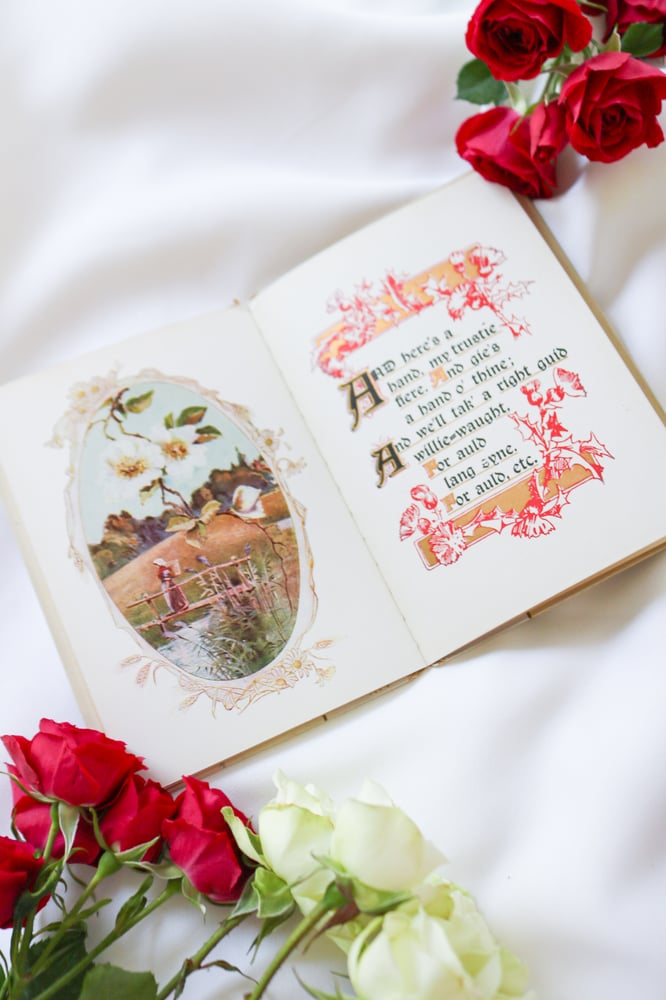 And here's a
hand, my trustie
fiere, And gie's
a hand o' thine;
And we'll tak' a right guid
willie-waught.
For auld
lang syne.
For auld, etc.